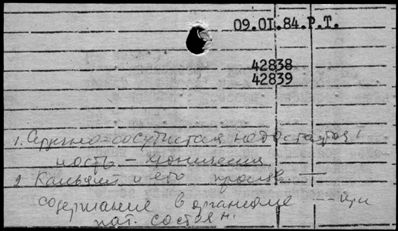 09.01.84.Р.Т.
42838
42839
1. Сердечно-сосудистая недостаточ-
ность – хроническая
2. Кальций и его произв. —
содержание в организме -- при
пат. состоян.